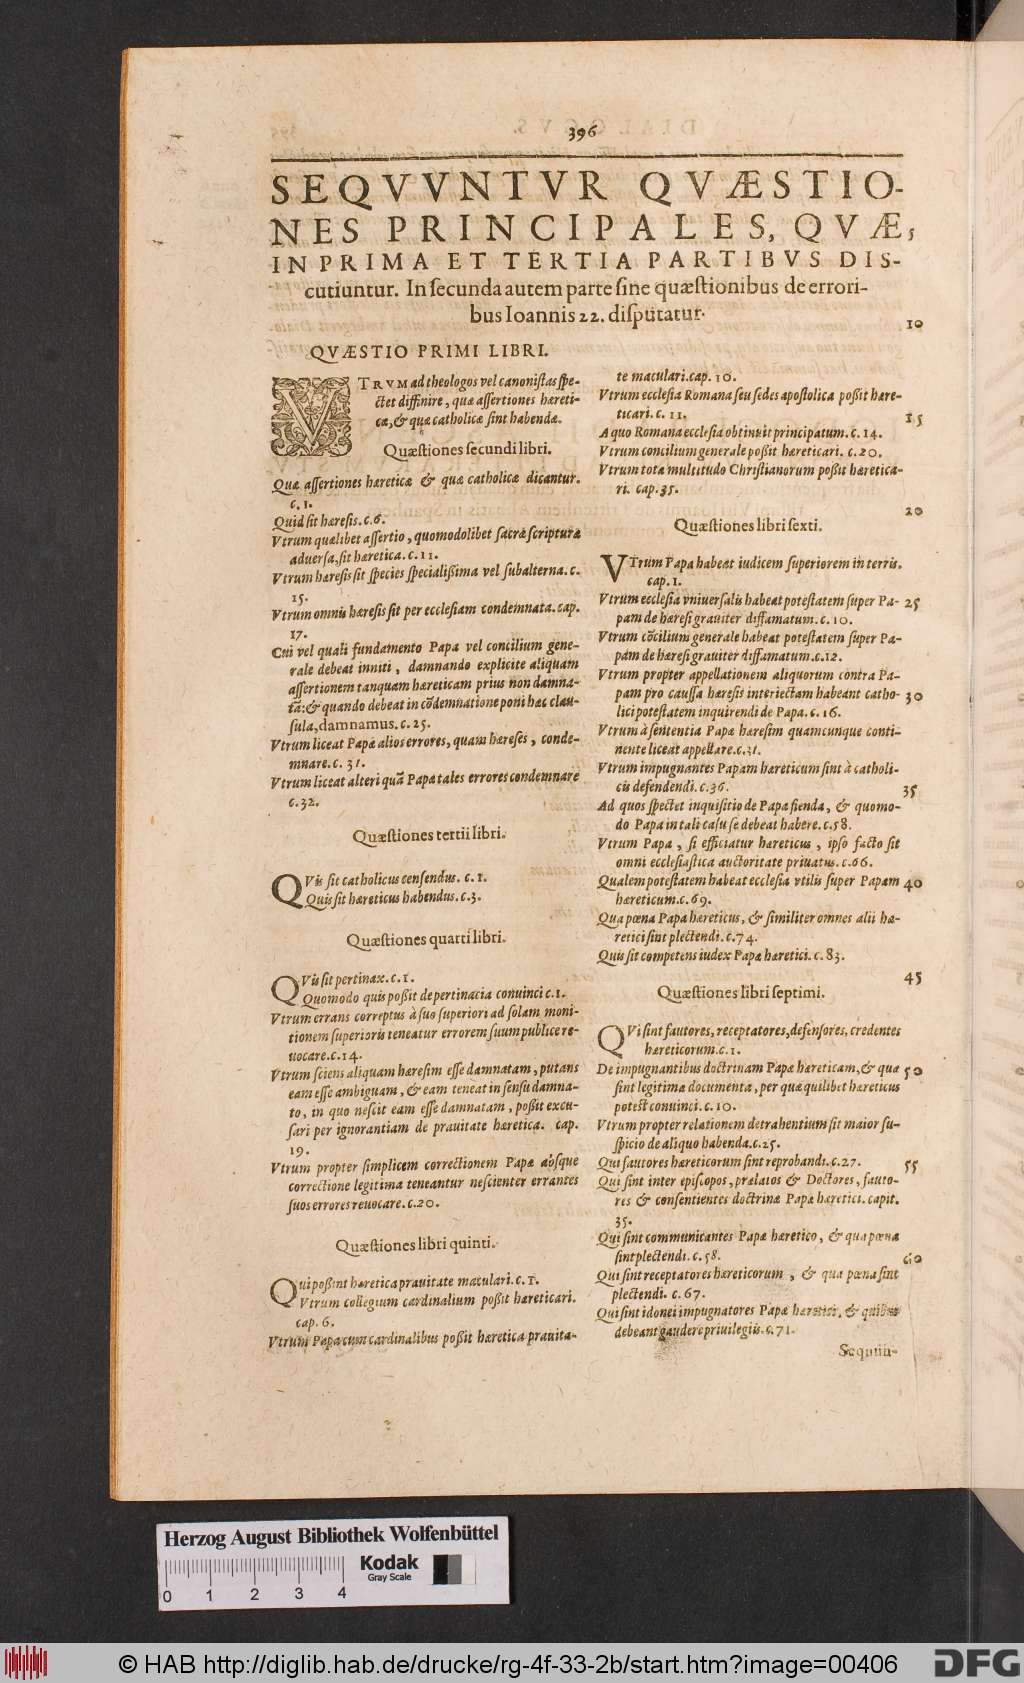 396
SEQVVNTVR QVÆSTIO-
NES PRINCIPALES, QVÆ,
IN PRIMA ET TERTIA PARTIBVS DIS-
cutiuntur. In ſecunda autem parte ſine quæſtionibus de errori-
bus Ioannis 22. diſputatur.
QVÆSTIO PRIMI LIBRI.
VTRVM ad theologos vel canoniſtas ſpe-
ctet diffinire, quæ aſſertiones hæreti-
cæ, & quæ catholicæ ſint habendæ.
Quæſtiones ſecundi libri.
Quæ aſſertiones hæreticæ & quæ catholicæ dicantur.
c. 1.
Quid ſit hæreſis. c. 6.
Vtrum quælibet aſſertio, quomodolibet ſacræ ſcripturæ
aduerſa, ſit hæretica. c. 11.
Vtrum hæreſis ſit ſpecies ſpecialißima vel ſubalterna. c.
15.
Vtrum omnis hæreſis ſit per eccleſiam condemnata. cap.
17.
Cui vel quali fundamento Papa vel concilium gene-
rale debeat inniti, damnando explicite aliquam
aſſertionem tanquam hæreticam prius non damna-
tã: & quando debeat in cõdemnatione poni hæc clau-
ſula, damnamus. c. 25.
Vtrum liceat Papæ alios errores, quam hæreſes, conde-
mnare. c. 31.
Vtrum liceat alteri quã Papæ tales errores condemnare
c. 32.
Quæſtiones tertii libri.
QVis ſit catholicus cenſendus. c. 1.
Quis ſit hæreticus habendus. c. 3.
Quæſtiones quarti libri.
QVis ſit pertinax. c. 1.
Quomodo quis poßit de pertinacia conuinci c. 1.
Vtrum errans correptus à ſuo ſuperiori ad ſolam moni-
tionem ſuperioris teneatur errorem ſuum publice re-
uocare. c. 14.
Vtrum ſciens aliquam hæreſim eſſe damnatam, putans
eam eſſe ambiguam, & eam teneat in ſenſu damna-
to, in quo neſcit eam eſſe damnatam, poßit excu-
ſari per ignorantiam de prauitate hæretica. cap.
19.
Vtrum propter ſimplicem correctionem Papæ absque
correctione legitima teneantur neſcienter errantes
ſuos errores reuocare. c. 20.
Quæſtiones libri quinti.
Qui poßint hæretica prauitate maculari. c. 1.
Vtrum collegium cardinalium poßit hæreticari.
cap. 6.
Vtrum Papa cum cardinalibus poßit hæretica prauita-
te maculari. cap. 10.
Vtrum eccleſia Romana ſeu ſedes apoſtolica poßit hære-
ticari. c. 11.
A quo Romana eccleſia obtinuit principatum. c. 14.
Vtrum concilium generale poßit hæreticari. c. 20.
Vtrum tota multitudo Chriſtianorum poßit hæretica-
ri. cap. 35.
Quæſtiones libri ſexti.
VTrum Papa habeat iudicem ſuperiorem in terris.
cap. 1.
Vtrum eccleſia vniuerſalis habeat poteſtatem ſuper Pa-
pam de hæreſi grauiter diffamatum. c. 10.
Vtrum cõcilium generale habeat poteſtatem ſuper Pa-
pam de hæreſi grauiter diffamatum. c. 12.
Vtrum propter appellationem aliquorum contra Pa-
pam pro cauſſa hæreſis interiectam habeant catho-
lici poteſtatem inquirendi de Papa. c. 16.
Vtrum à ſententia Papæ hæreſim quamcunque conti-
nente liceat appellare. c. 31.
Vtrum impugnantes Papam hæreticum ſint à catholi-
cis defendendi. c. 36.
Ad quos ſpectet inquiſitio de Papa fienda, & quomo-
do Papa in tali caſu ſe debeat habere. c. 58.
Vtrum Papa, ſi efficiatur hæreticus, ipſo facto ſit
omni eccleſiaſtica auctoritate priuatus. c. 66.
Qualem poteſtatem habeat eccleſia vtilis ſuper Papam
hæreticum. c. 69.
Qua pœna Papa hæreticus, & ſimiliter omnes alii hæ-
retici ſint plectendi. c. 74.
Quis ſit competens iudex Papæ hæretici. c. 83.
Quæſtiones libri ſeptimi.
QVi ſint fautores, receptatores, defenſores, credentes
hæreticorum. c. 1.
De impugnantibus doctrinam Papæ hæreticam, & quæ
ſint legitima documenta, per quæ quilibet hæreticus
poteſt conuinci. c. 10.
Vtrum propter relationem detrahentium ſit maior ſu-
ſpicio de aliquo habenda. c. 25.
Qui fautores hæreticorum ſint reprobandi. c. 27.
Qui ſint inter epiſcopos, prælatos & Doctores, fauto-
res & conſentientes doctrinæ Papæ hæretici. capit.
35.
Qui ſint communicantes Papæ hæretico, & qua pœna
ſint plectendi. c. 58.
Qui ſint receptatores hæreticorum, & qua pœna ſint
plectendi. c. 67.
Qui ſint idonei impugnatores Papæ hæretici, & quibus
debeant gaudere priuilegiis. c. 71.
Sequun-
5
10
15
20
25
30
35
40
45
50
55
60
Herzog August Bibliothek Wolfenbüttel
Kodak
Gray Scale
0 1 2 3 4
© HAB http://diglib.hab.de/drucke/rg-4f-33-2b/start.htm?image=00406
DFG